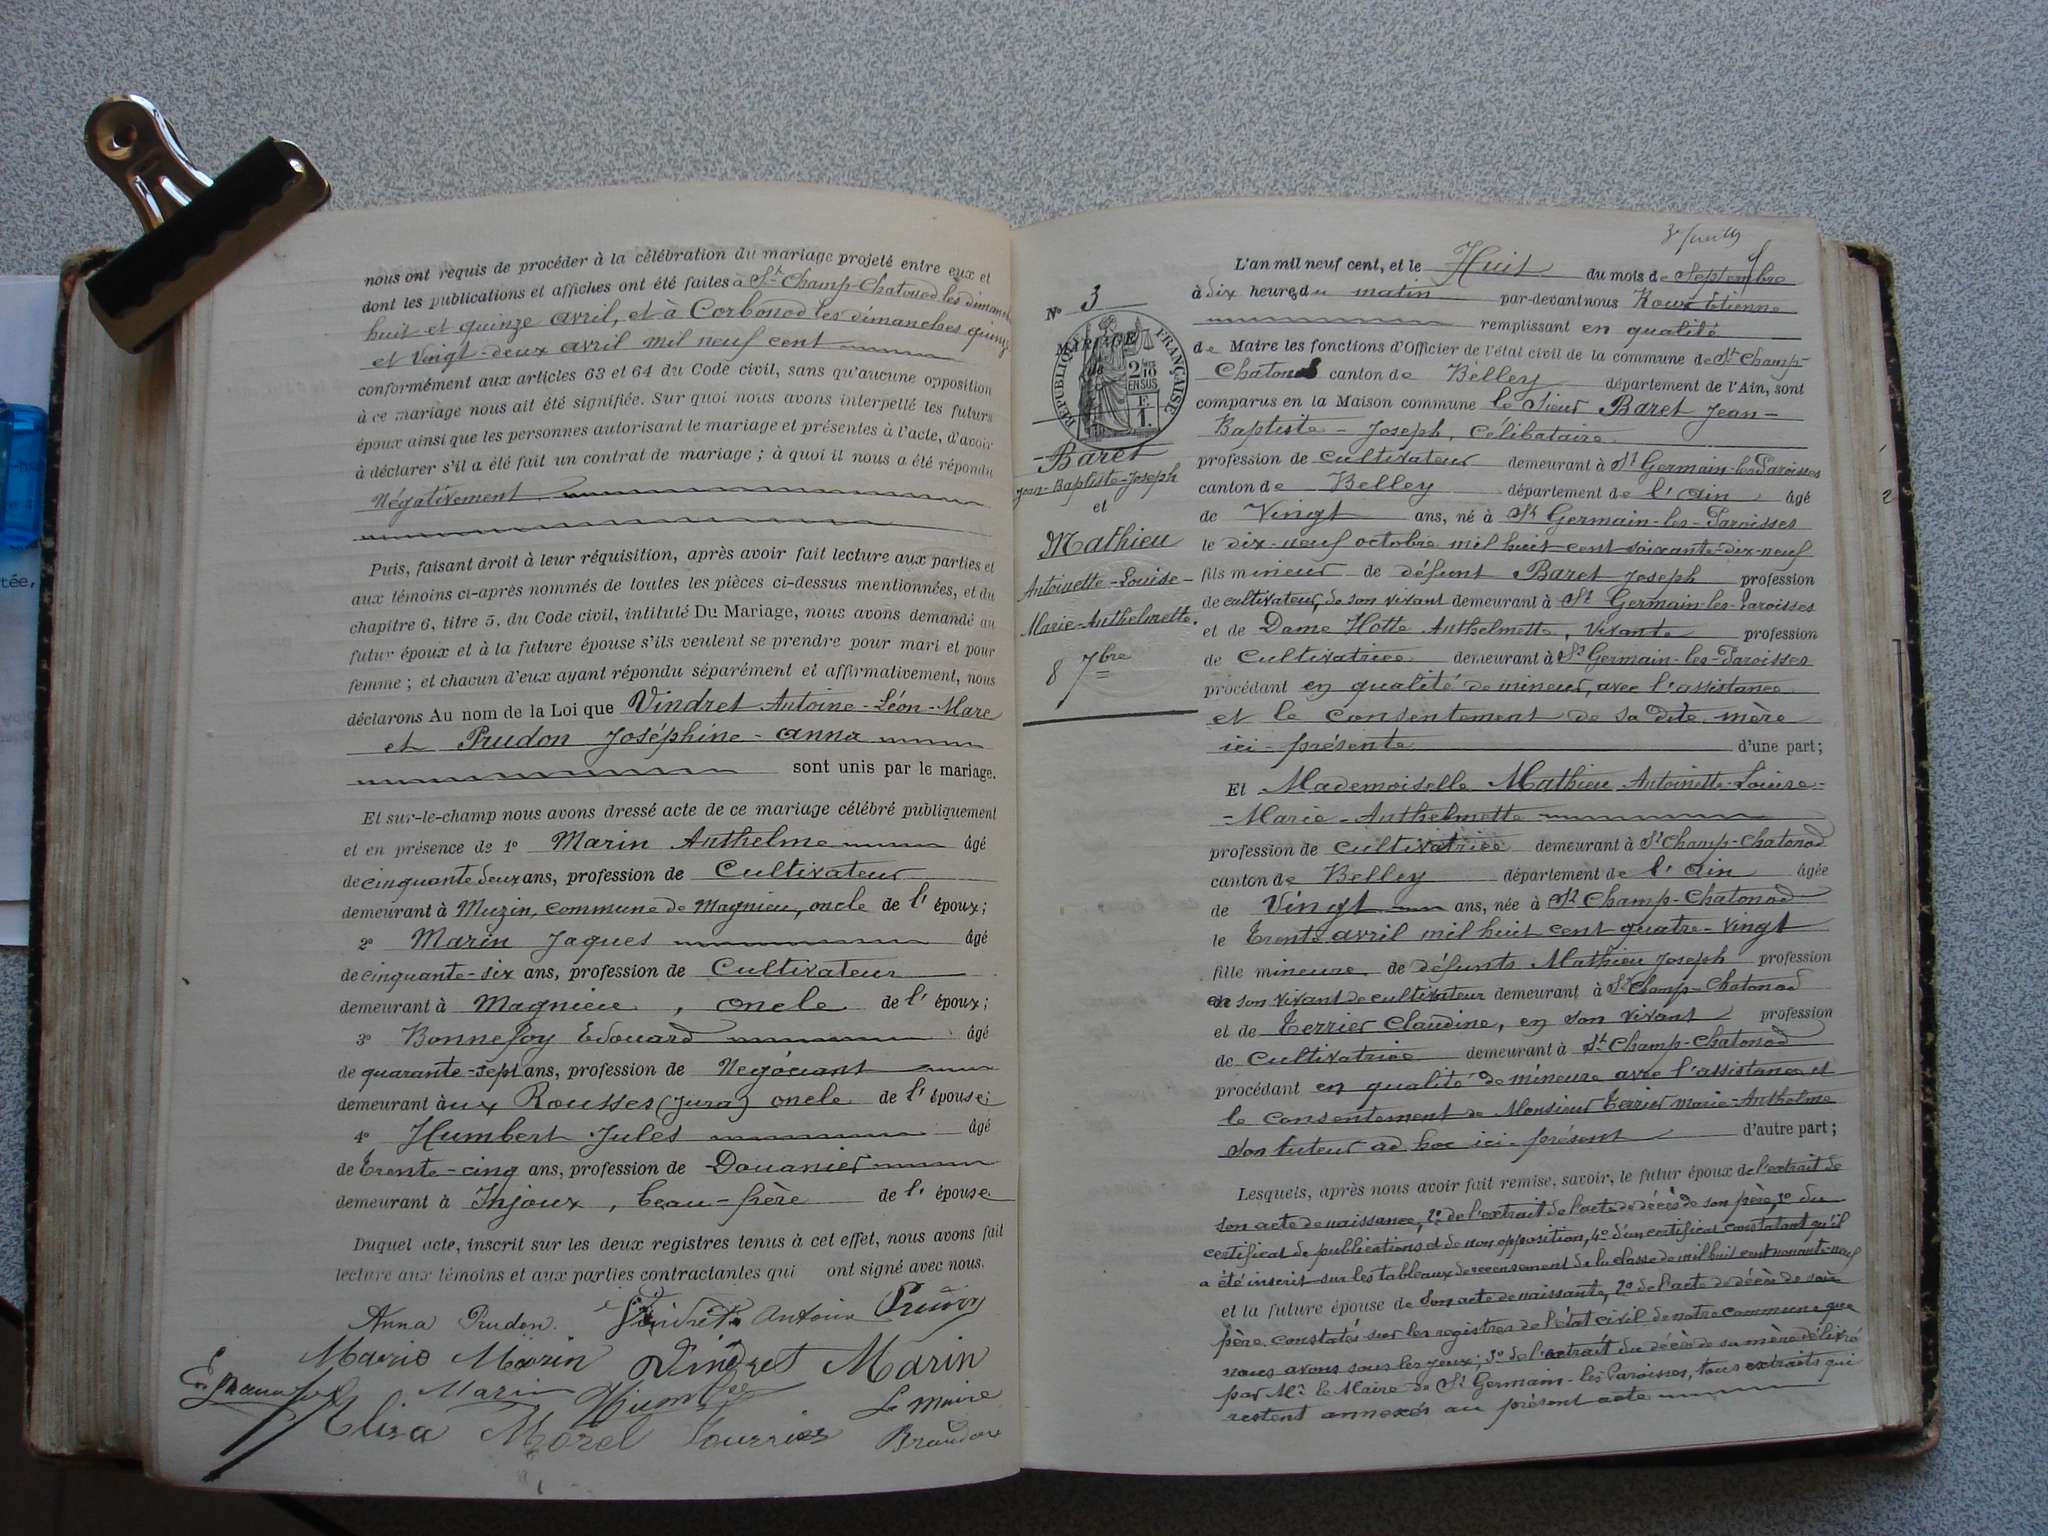 nous ont requis de procéder à la célébration du mariage projeté entre eux et
dont les publications et affiches ont été faites à St Champ-Chatonod les dimanches
huit et quinze avril, et à Corbonod les dimanches quinze
et Vingt-deux avril mil neuf cent
conformément aux articles 63 et 64 du Code civil, sans qu'aucune opposition
à ce mariage nous ait été signifiée. Sur quoi nous avons interpellé les futurs
époux ainsi que les personnes autorisant le mariage et présentes à l'acte, d'avoir
à déclarer s'il a été fait un contrat de mariage ; à quoi il nous a été répondu
Négativement
Puis, faisant droit à leur réquisition, après avoir fait lecture aux parties et
aux témoins ci-après nommés de toutes les pièces ci-dessus mentionnées, et du
chapitre 6, titre 5. du Code civil, intitulé Du Mariage, nous avons demandé au
futur époux et à la future épouse s'ils veulent se prendre pour mari et pour
femme ; et chacun d'eux ayant répondu séparément et affirmativement, nous
déclarons Au nom de la Loi que Vindret Antoine-Léon-Marc
et Prudon Joséphine-anna
sont unis par le mariage.
Et sur-le-champ nous avons dressé acte de ce mariage célébré publiquement
et en présence de 1° Marin Anthelme âgé
de cinquante deux ans, profession de Cultivateur
demeurant à Muzin, commune de Magnieu, oncle de l' époux;
2° Marin Jaques âgé
de cinquante-six ans, profession de Cultivateur
demeurant à Magnieu, oncle de l' époux;
3° Bonnefoy Edouard âgé
de quarante-sept ans, profession de Négociant
demeurant aux Rousses (Jura) oncle de l' épouse;
4° Humbert Jules âgé
de Trente-cinq ans, profession de Douanier
demeurant à Injoux, beau-frère de l' épouse.
Duquel acte, inscrit sur les deux registres tenus à cet effet, nous avons fait
lecture aux témoins et aux parties contractantes qui ont signé avec nous.
Anna Prudon Vindret Antoine Prudon
Marie Marin Vindret Marin
Marin Humbert Le Maire
Elisa Morel
3e feuillet
N° 3
MARIAGE
de
RÉPUBLIQUE FRANÇAISE
2/10
EN SUS
1.
Baret
Jean-Baptiste-Joseph
et
Mathieu
Antoinette-Louise-
Marie-Anthelmette.
8 7bre
L'an mil neuf cent, et le Huit du mois de Septembre
à dix heures du matin par-devant nous Roux Etienne
remplissant en qualité
de Maire les fonctions d'Officier de l'état civil de la commune de St Champ-
Chatonod canton de Belley département de l'Ain, sont
comparus en la Maison commune le Sieur Baret Jean-
Baptiste-Joseph, célibataire
profession de cultivateur demeurant à St Germain-les-Paroisses
canton de Belley département de l'ain âgé
de Vingt ans, né à St Germain-les-Paroisses
le dix-neuf octobre mil huit cent soixante-dix-neuf
fils mineur de défunt Baret Joseph profession
de cultivateur, de son vivant demeurant à St Germain-les-Paroisses
et de Dame Hotte Anthelmette, vivante profession
de Cultivatrice demeurant à St Germain-les-Paroisses
procédant en qualité de mineur, avec l'assistance
et le consentement de sa dite mère
ici-présente d'une part;
Et Mademoiselle Mathieu Antoinette-Louise-
-Marie-Anthelmette
profession de cultivatrice demeurant à St Champ-Chatonod
canton de Belley département de l'ain âgée
de Vingt ans, née à St Champ-Chatonod
le Trente avril mil huit cent quatre-vingt
fille mineure de défunts Mathieu Joseph profession
en son vivant de cultivateur demeurant à St Champ-Chatonod
et de Terrier Claudine, en son vivant profession
de Cultivatrice demeurant à St Champ-Chatonod
procédant en qualité de mineure avec l'assistance et
le consentement de Monsieur Terrier Marie-Anthelme
son tuteur ad hoc ici-présent d'autre part;
Lesquels, après nous avoir fait remise, savoir, le futur époux de l'extrait de
son acte de naissance, 2° de l'extrait de l'acte de décès de son père, 3° du
certificat de publications et de non opposition, 4° d'un certificat constatant qu'il
a été inscrit sur les tableaux de recensement de la classe de mil huit cent nonante-neuf
et la future épouse de son acte de naissante, 2° de l'acte de décès de son
père constatés sur les registres de l'état civil de notre commune que
nous avons sous les yeux; 3° de l'extrait du décès de sa mère délivré
par Mr le Maire de St Germain-les-Paroisses, tous extraits qui
restent annexés au présent acte